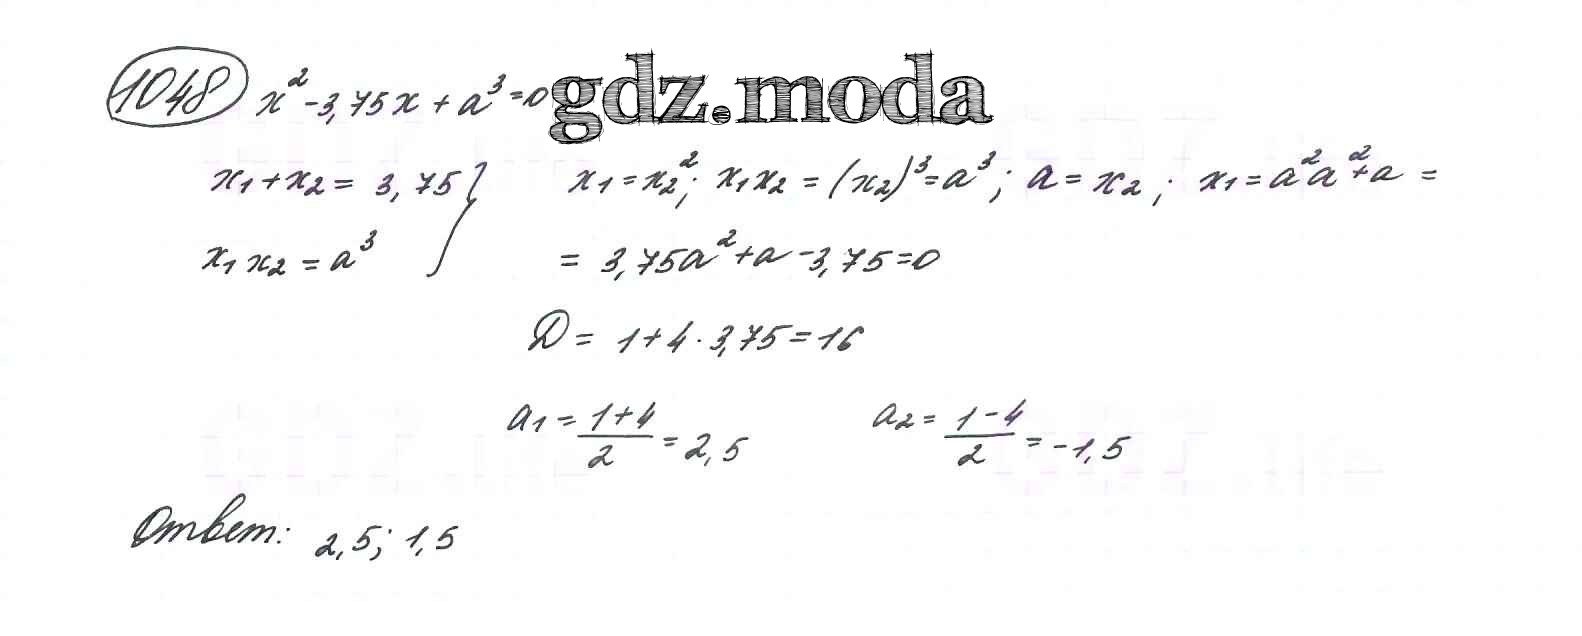 1048 x² - 3,75x + a³ = 0 gdz.moda
x₁ + x₂ = 3,75 } x₁ = x₂²; x₁x₂ = (x₂)³ = a³; a = x₂; x₁ = a² a² + a =
x₁x₂ = a³ = 3,75a² + a - 3,75 = 0
D = 1 + 4 · 3,75 = 16
a₁ = (1+4)/2 = 2,5 a₂ = (1-4)/2 = -1,5
Ответ: 2,5; 1,5